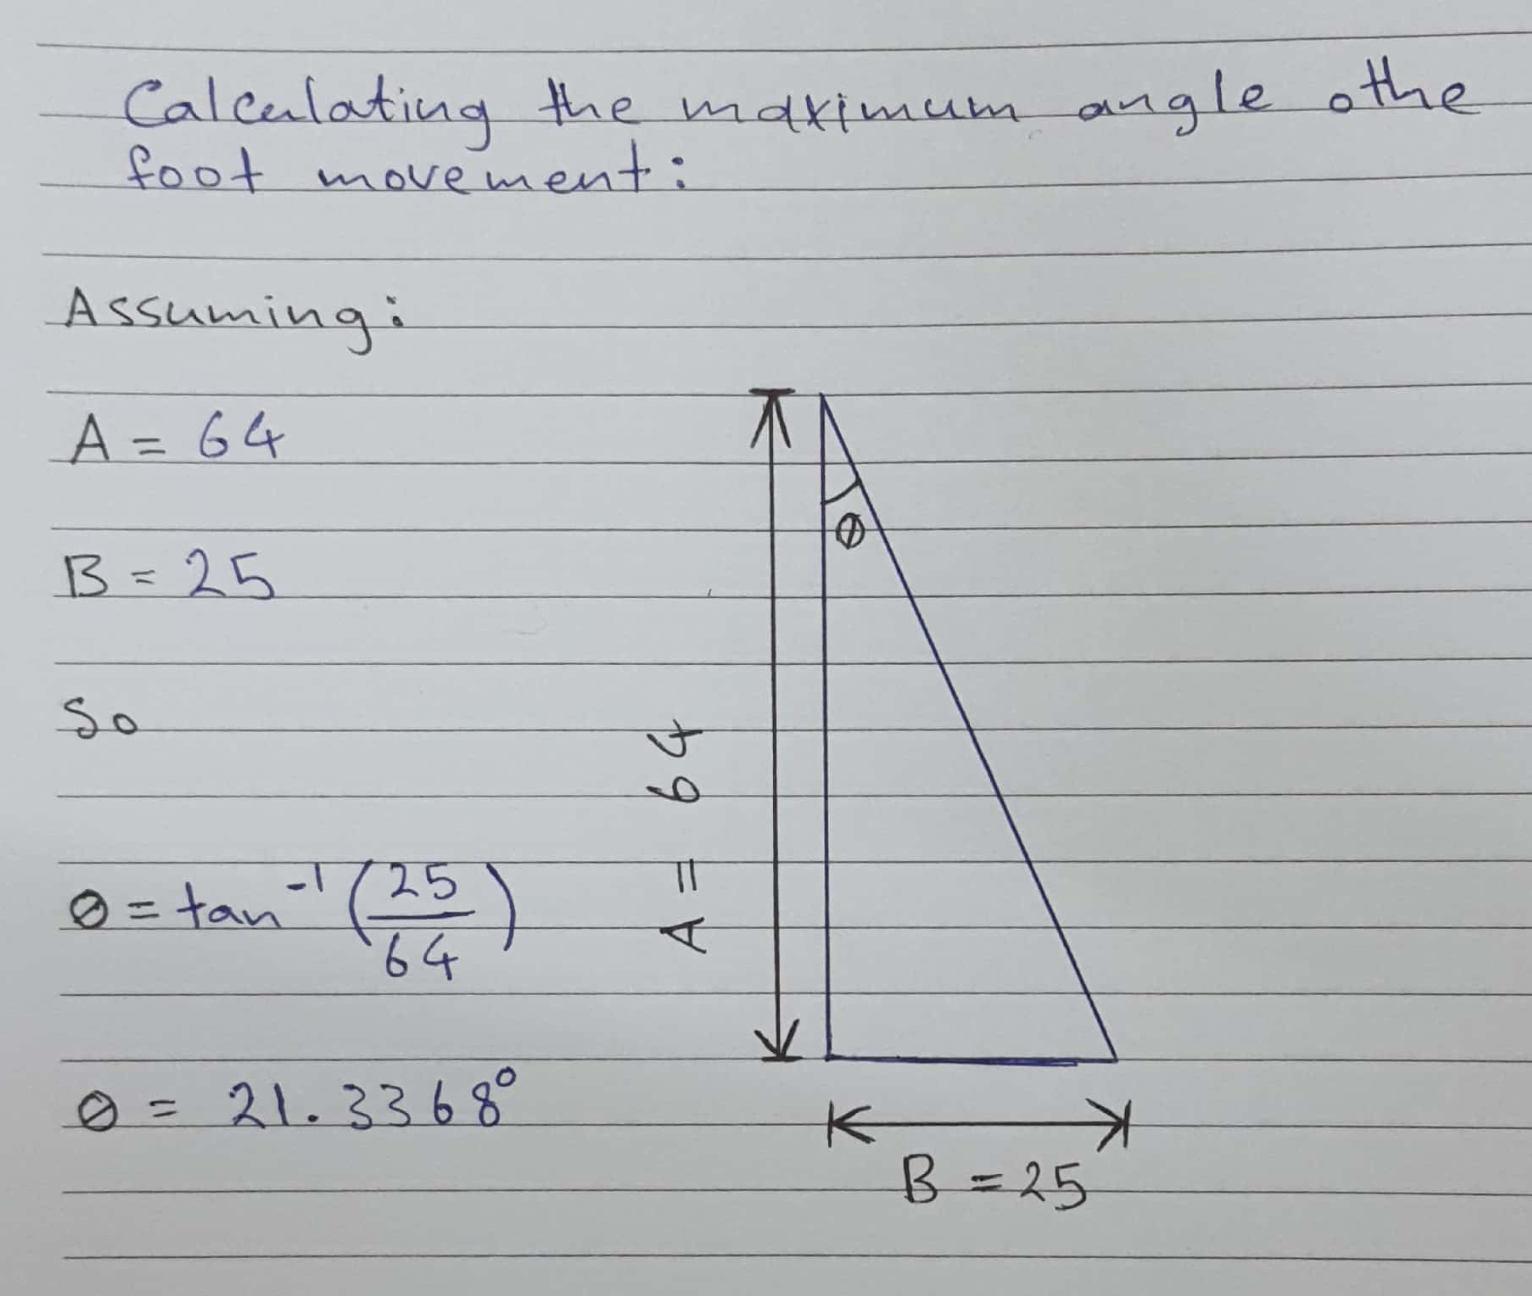 Calculating the maximum angle othe
foot movement:
Assuming:
A = 64
B = 25
So
θ = tan⁻¹(25/64)
θ = 21.3368°
θ
A = 64
B = 25